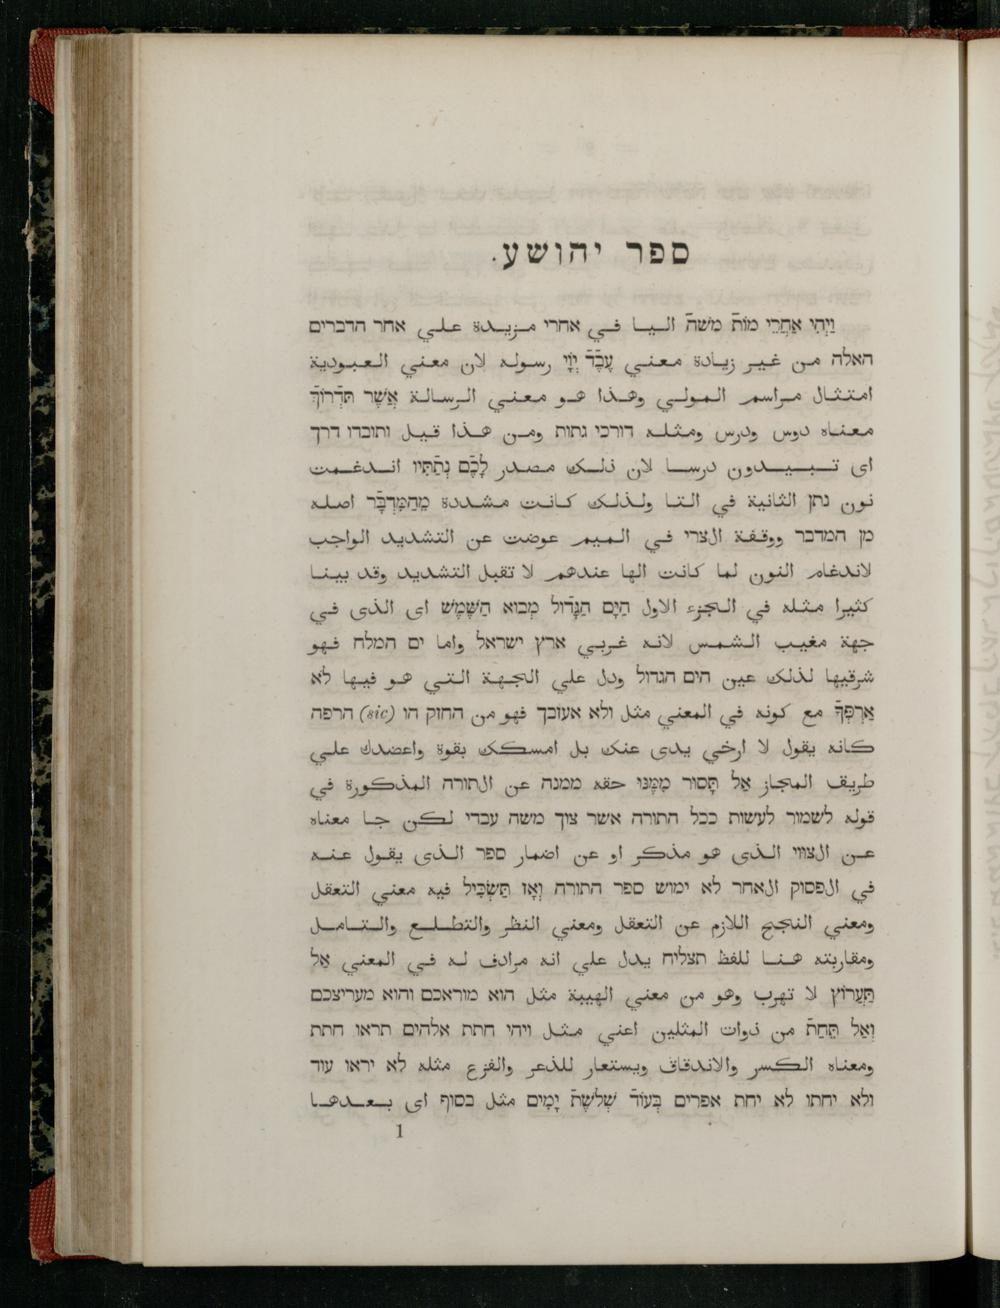 ספר יהושע.
וַיְהִי אַחֲרֵי מוֹת משה اليا في אחרי مزيدة علي אחר הדברים
האלה من غير زيادة معني עֶבֶד יְיָ رسوله لان معني العبودية
امتثال مراسم المولي وهذا هو معني الرسالة אֲשֶׁר תִּדְרוֹךְ
معناه دوس ودرس ومثله דורכי גתות ومن هذا قيل ותוכדו דרך
اى تبيدون درسا لان ذلك مصدر לָכֶם נְתַתִּיו اندغمت
نون נתן الثانية في التا ولذلك كانت مشددة מֵהַמִּדְבָּר اصله
מן המדבר ووقفة الצרי في الميم عوضت عن التشديد الواجب
لاندغام النون لما كانت الها عندهم لا تقبل التشديد وقد بينا
كثيرا مثله في الجزء الاول הַיָּם הַגָּדוֹל מְבוֹא הַשָּׁמֶשׁ اى الذى في
جهة مغيب الشمس لانه غربي ארץ ישראל واما ים המלח فهو
شرقيها لذلك عين הים הגדול ودل علي الجهة التي هو فيها לֹא
אַרְפְּךָ مع كونه في المعني مثل ולא אעזבך فهو من החזק הו (sic) הרפה
كانه يقول لا ارخي يدى عنك بل امسكك بقوة واعضدك علي
طريف المجاز אַל תָּסוּר מִמֶּנּוּ حقه ממנה عن الתורה المذكورة في
قوله לשמור לעשות ככל התורה אשר צוך משה עבדי لكن جا معناه
عن الצווי الذى هو مذكر او عن اضمار ספר الذى يقول عنه
في الפסוק الאחר לא ימוש ספר התורה וְאָז תַּשְׂכִּיל فيه معني التعقل
ومعني النجح اللازم عن التعقل ومعني النظر والتطلع والتامل
ومقاربته هنا للفظ תצליח يدل علي انه مرادف له في المعني אַל
תַּעֲרוֹץ لا تهرب وهو من معني الهيبة مثل הוא מוראכם והוא מעריצכם
וְאַל תֵּחַת من ذوات المثلين اعني مثل ויהי חתת אלהים תראו חתת
ومعناه الكسر والاندقاق ويستعار للذعر والفزع مثله לא יראו עוד
ולא יחתו לא יחת אפרים בְּעוֹד שְׁלֹשֶׁת יָמִים مثل בסוף اى بعدها
1